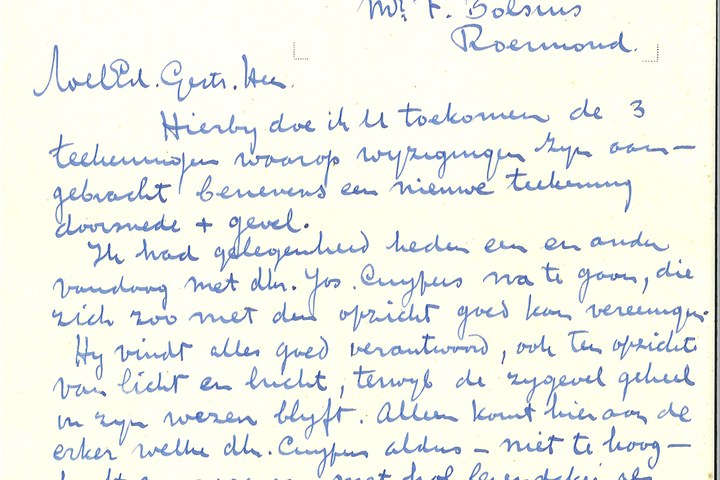 Mr. F. Bolsius
Roermond.
WelEd. Gestr. Heer.
Hierby doe ik U toekomen de 3
teekeningen waarop wyzigingen zyn aan-
gebracht benevens een nieuwe teekening
doorsnede + gevel.
Ik had gelegenheid heden een en ander
vandaag met dhr. Jos. Cuypers na te gaan, die
zich zoo met den opzicht goed kan vereenigen.
Hy vindt alles goed verantwoord, ook ten opzichte
van licht en lucht, terwyl de zygevel geheel
in zyn wezen blyft. Alleen komt hieraan de
erker welke dhr. Cuypers aldus – niet te hoog –
met